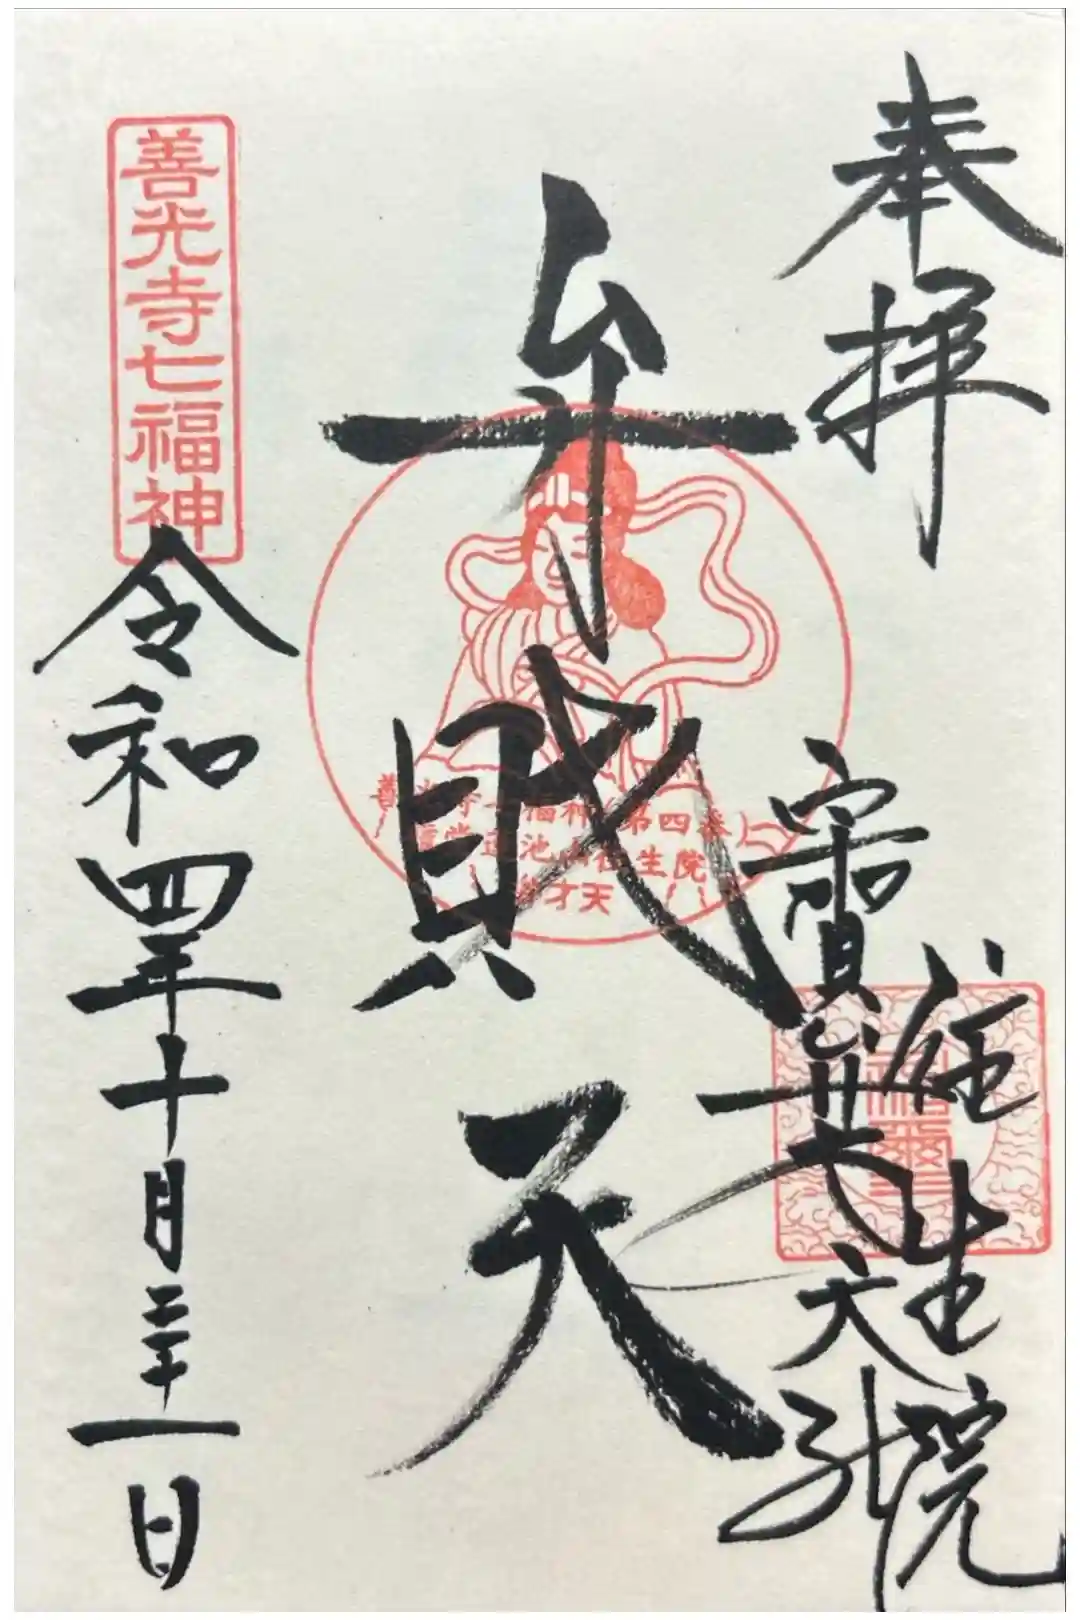 奉拝
往生院
弁財天
善光寺七福神（第四番）
池
往生院
才天
善光寺七福神
令和四年十月二十一日